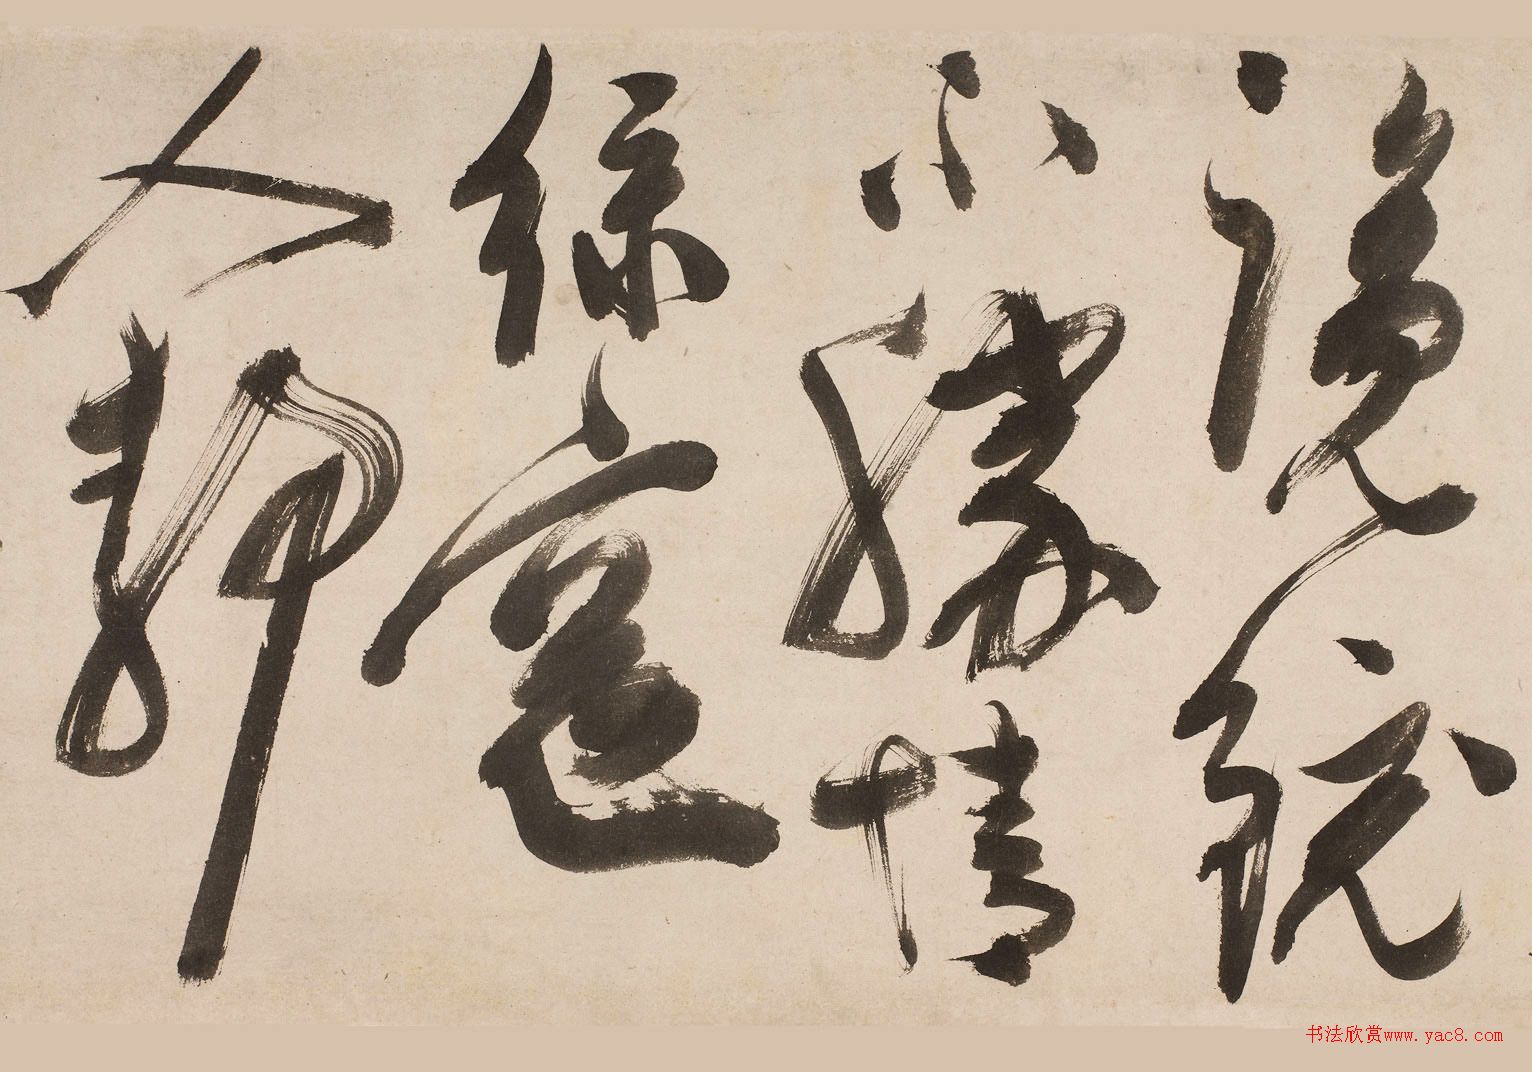 不勝情
綠窗
人靜
书法欣赏www.yac8.com